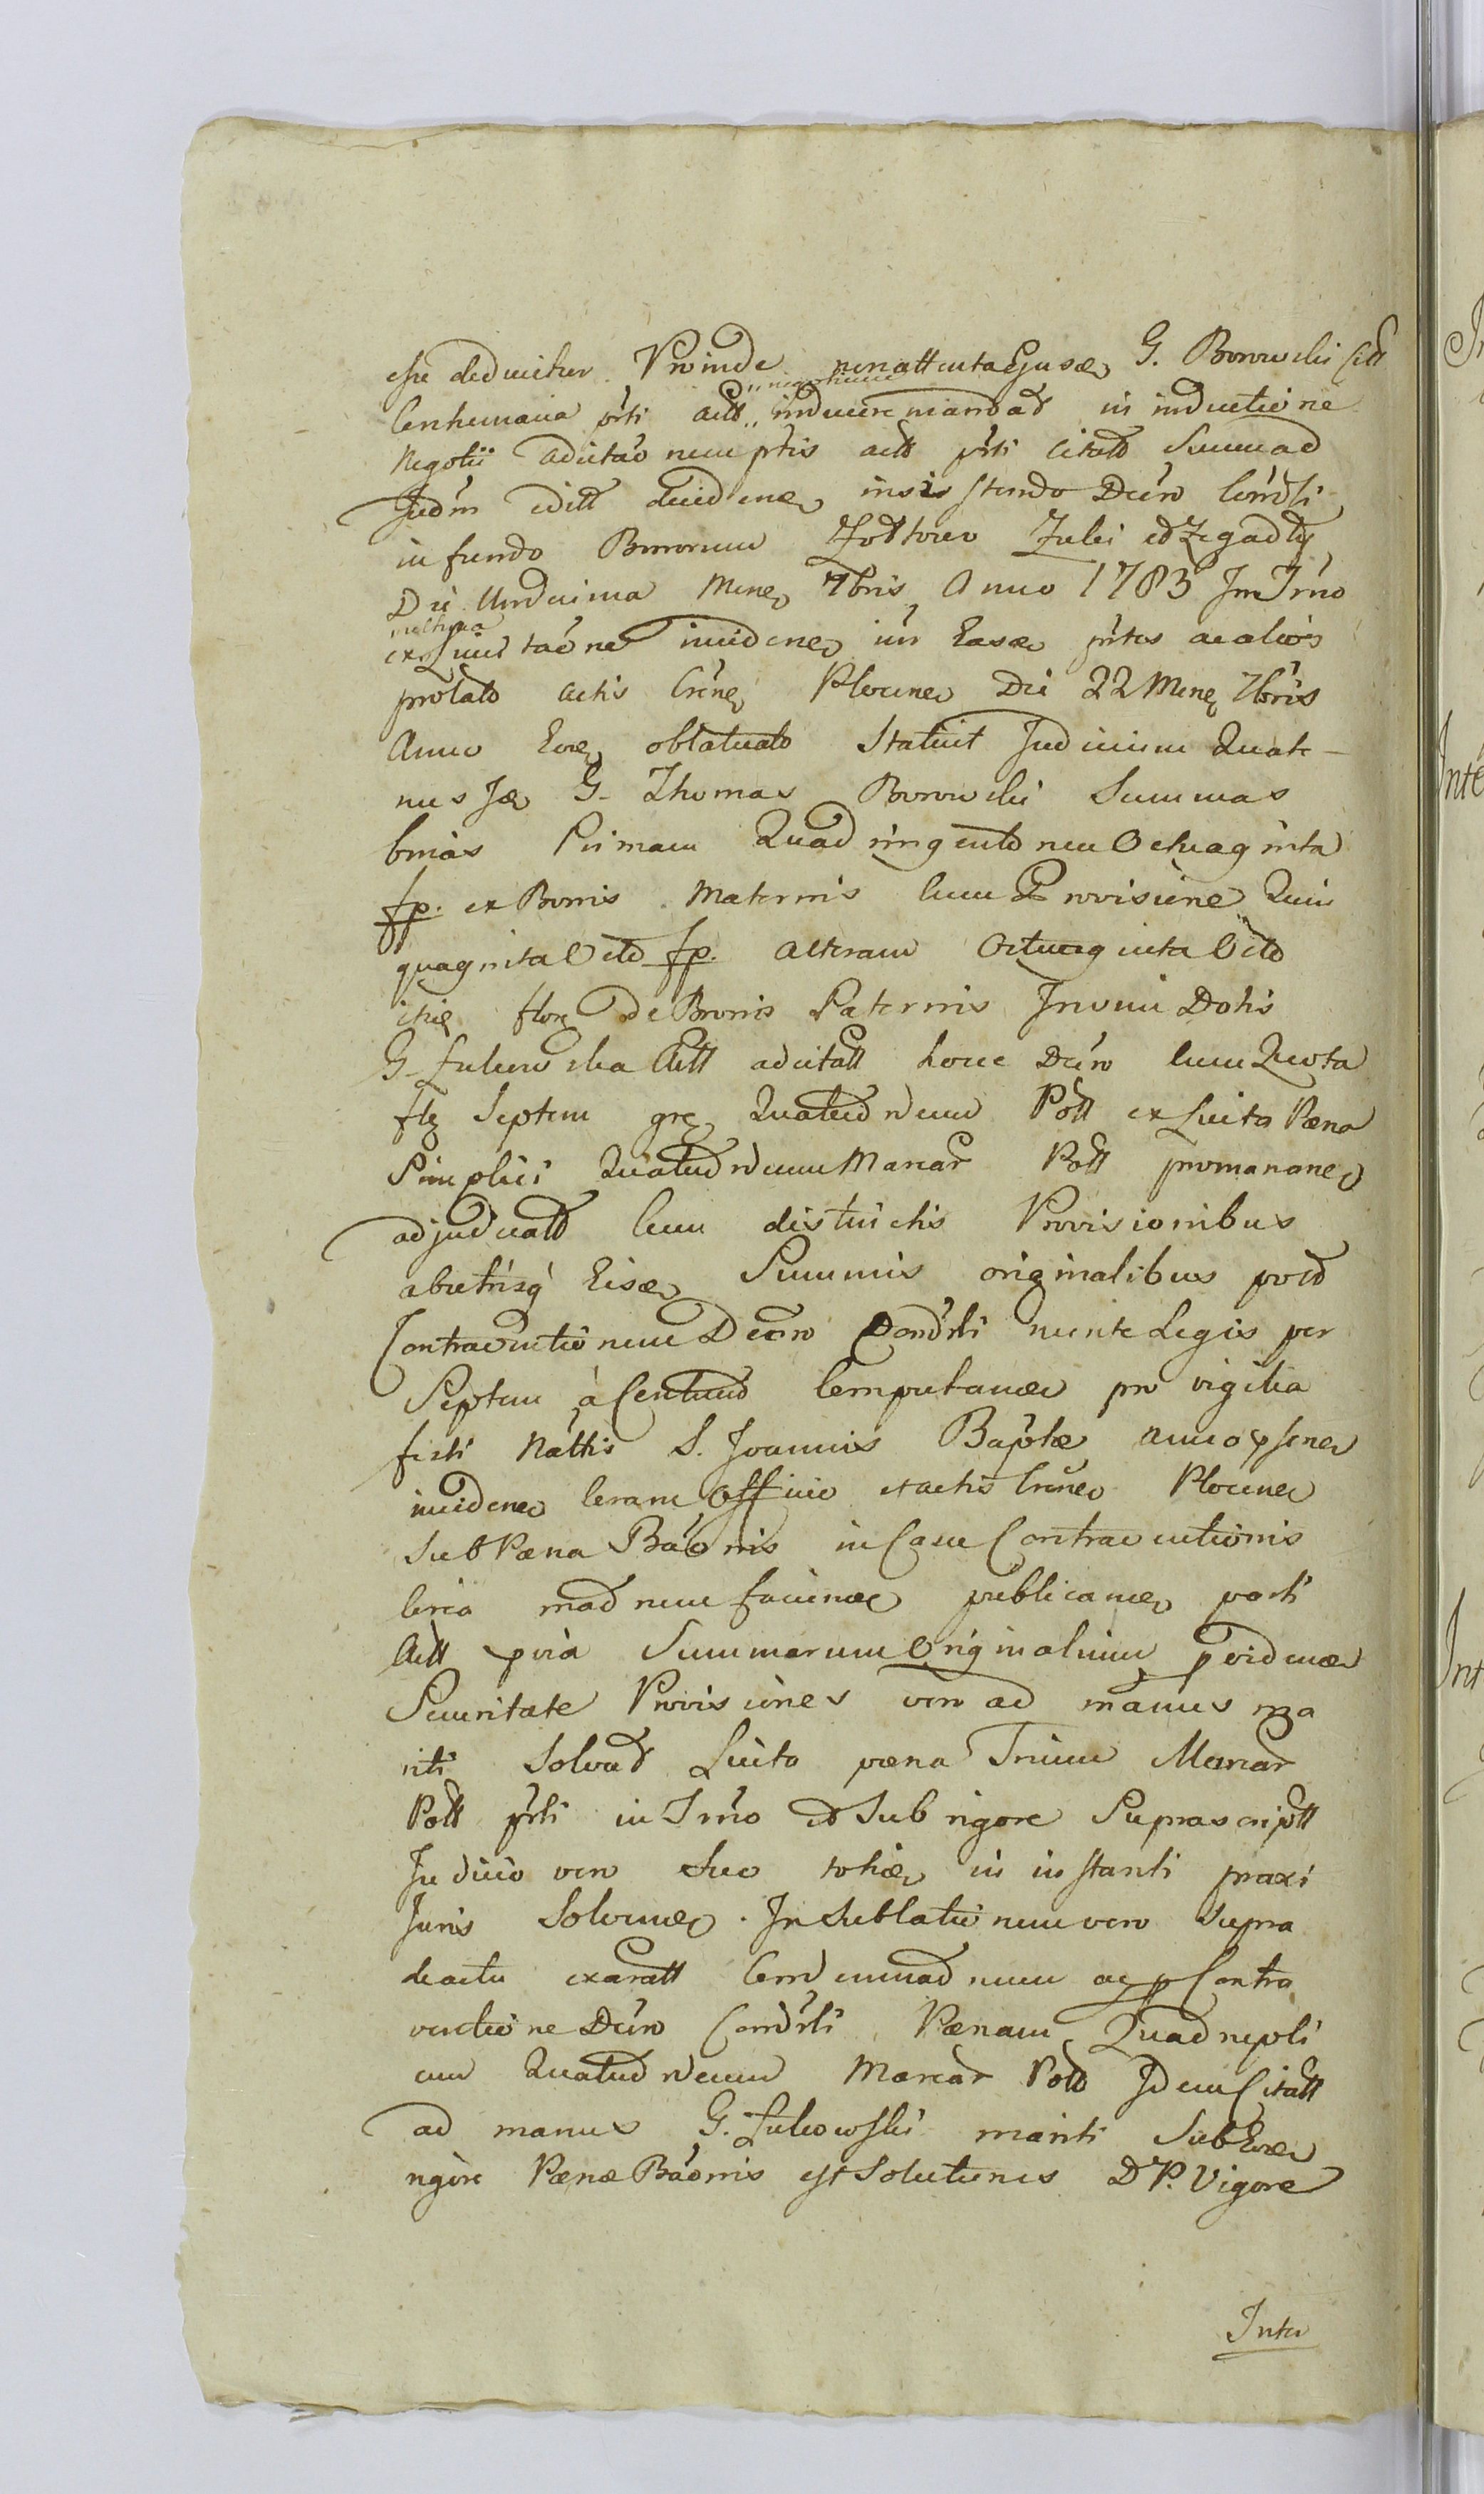 esse deducitur. Proinde non attenta Ejusd G. Borowski Citt
Contumacia prti actt „negotium
inducere mandat in inductione
Negotii adcitaõ nem prtis actt prti citatt Summad
Judm editt decidend insistendo Decr Comdsi
in fundo Bonorum Zottowo Zulki et Zegadty
Die Undecima Mens 7bris Anno 1783 In Trno
ex Limitaõne incidend inr Easd prtes ac alios
prolatt actis Crens Plocens Die 22 Mens 7bris
Anno Eod oblatuatt Statuit Judicium Quate-
nus Id G. Thomas Borowski Summas
binas Primam Quadringentorum Octuaginta
fp. ex Bonis Maternis Cum Provisione Quin
quaginta Octo fp. alteram Octuaginta Octo
itid flor de Bonis Paternis Inomi Dotis
G. Lukowska Actt adcitatt hocce Decr Cum Luita
flg Septem grs Quatuordecim Poll ex Luita Pæna
Simplici Quatuordecim Marcar Poll promanand
adjudicatt Cum distinctis Provisionibus
ab utrisq Eisd Summis originalibus post
Contraventionem Decr Comdsi mente Legis per
Septem à Centum Computand pro vigilia
festi Nattis S. Joannis Baptæ anno psend
incidend Coram Officio et actis Crens Plocens
Sub Pæna Báõnis in Casu Contraventionis
circa mad nem faciend publicand parti
Actt pvia Summarum Originalium pvidend
Securitate Provisiones vero ad manus ma
riti Solvat Luita pæna Trium Marcar
Poll prti in Trno et Sub rigore Suprascriptt
Judicio vero Suo totid in instanti praxi
Juris Solvend. In Sublationem vero Supra
de actu exaratt Condemnad num ac p Contra
ventione Decr Comdsi Pænam Quadrupli
cem Quatuordecim Marcar Poll Idem Citatt
ad manus G. Lukowski mariti Sub Eod
rigore Pænæ Báõnis est Soluturus D P. Vigore
Inter